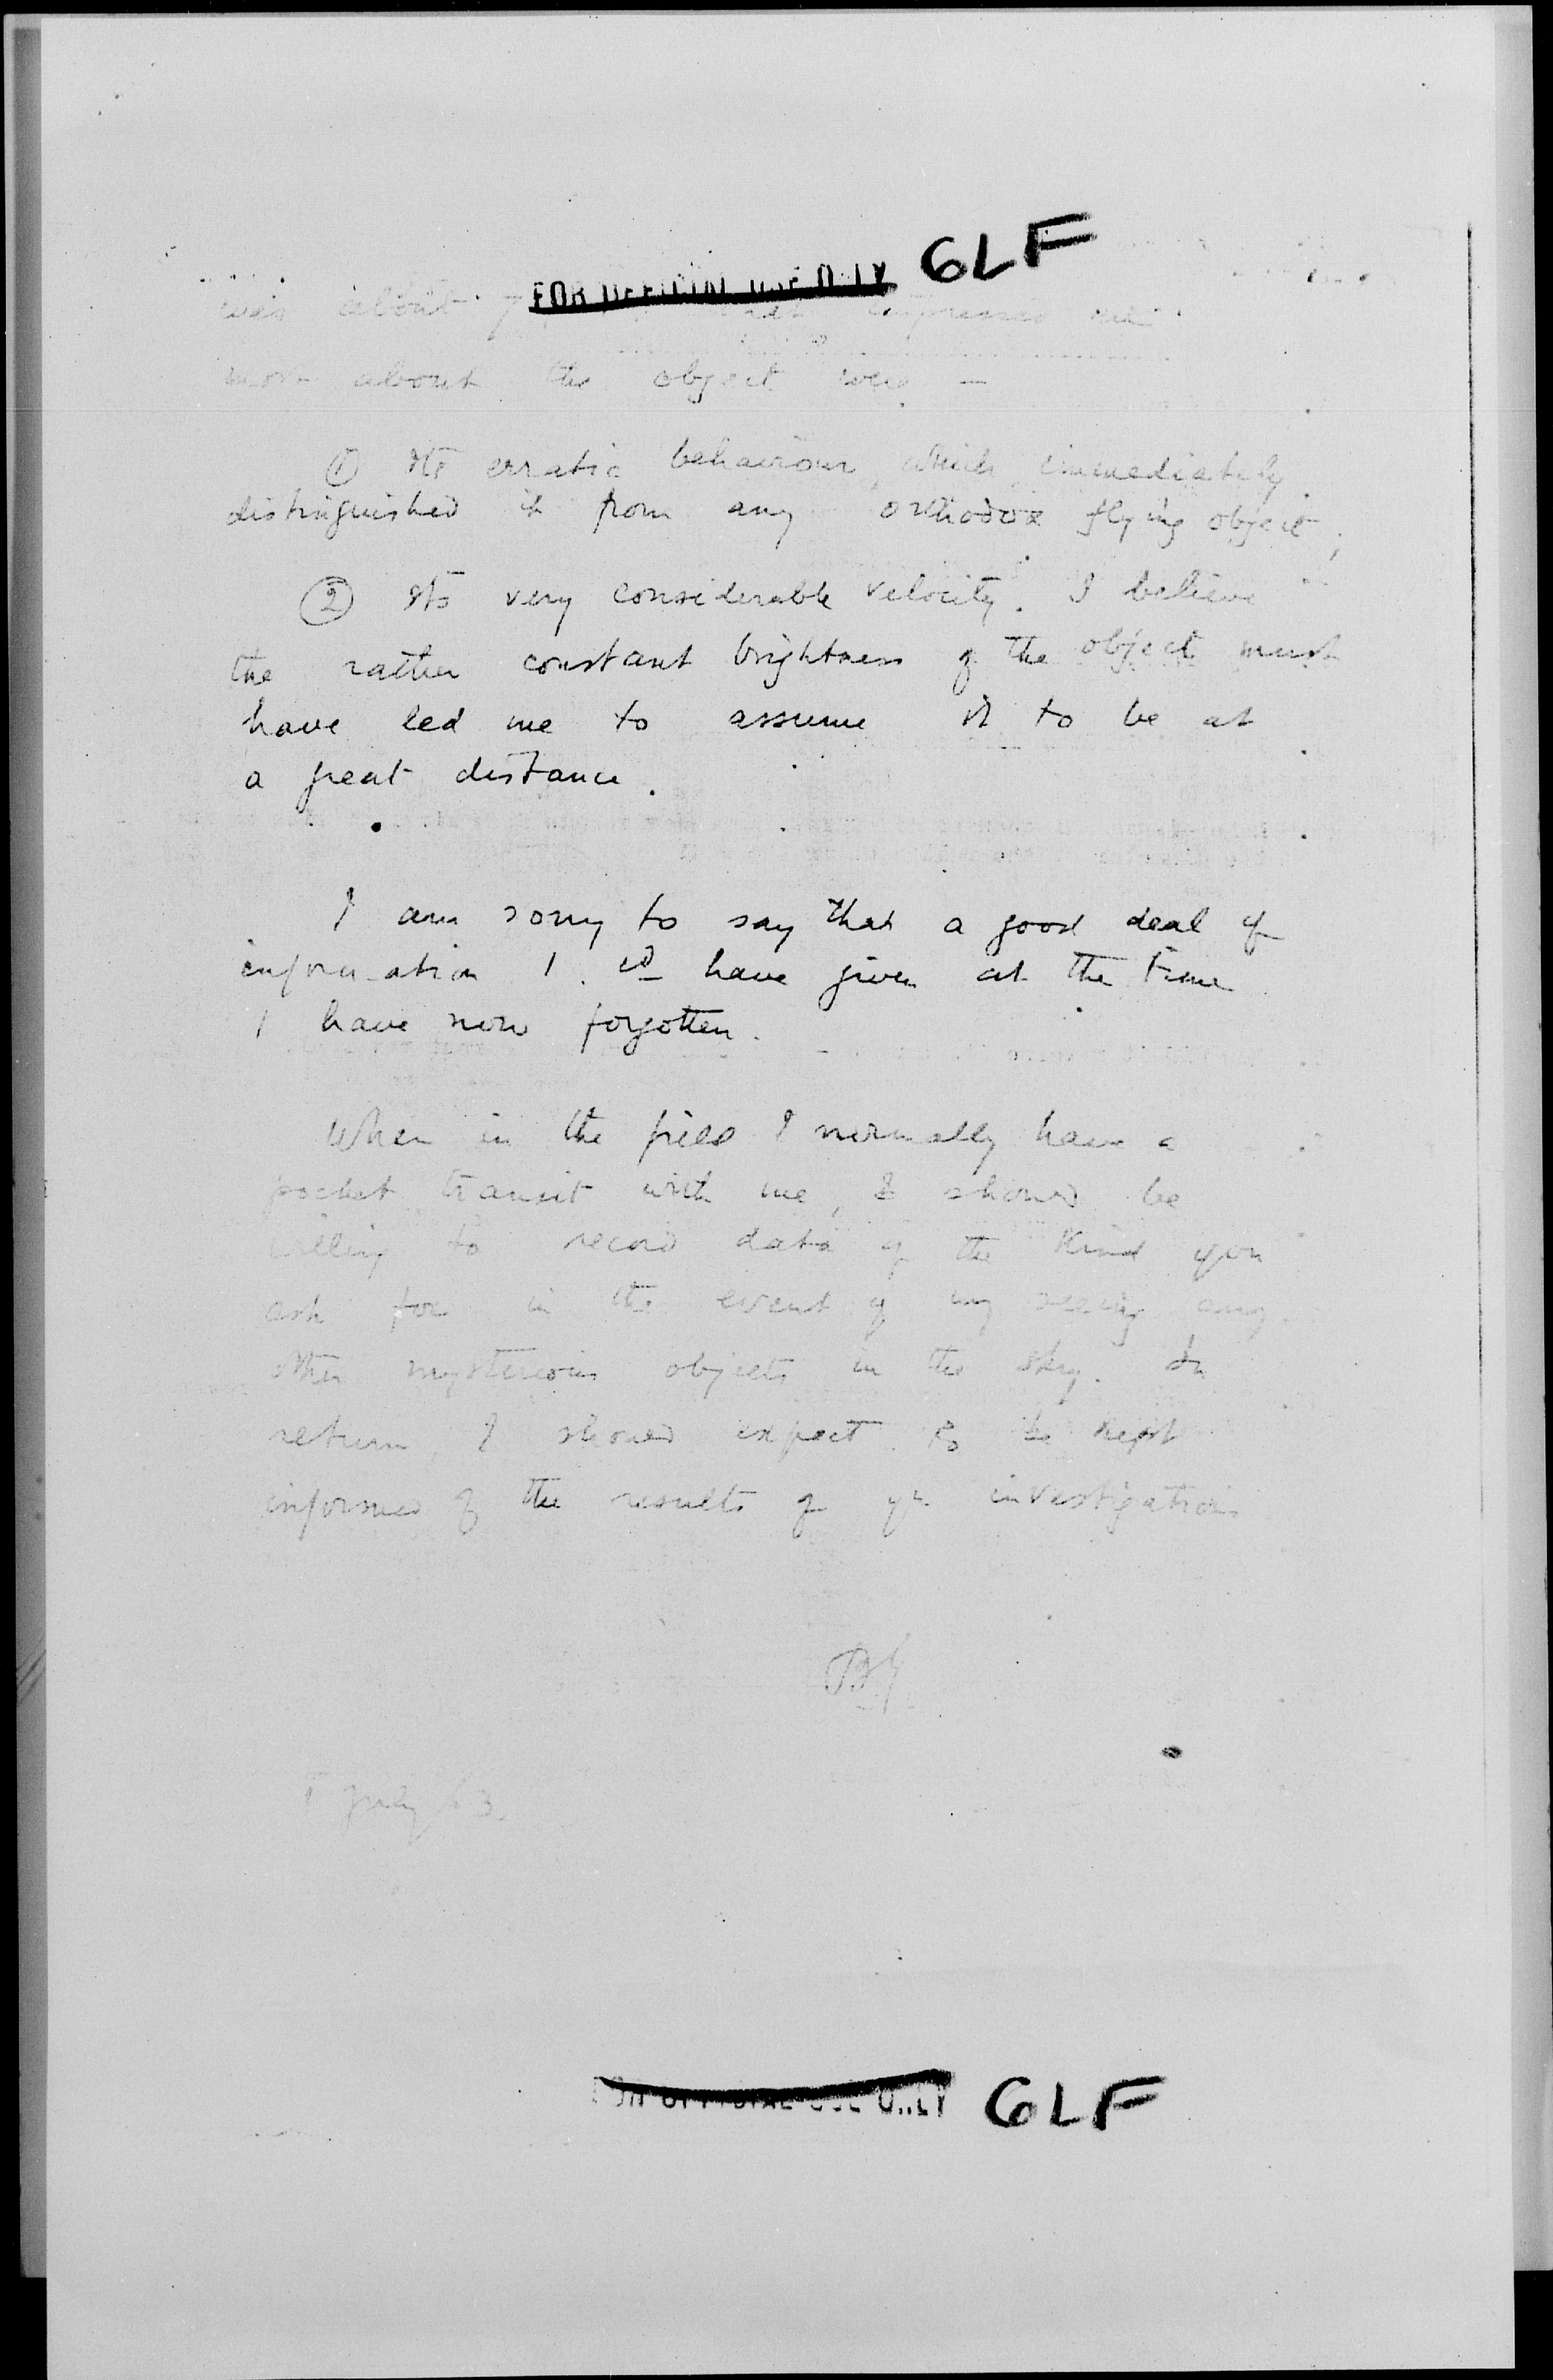 FOR OFFICIAL USE ONLY GLF
was about impressed me
most about the object were —
① Its erratic behaviour, which immediately
distinguished it from any orthodox flying object;
② Its very considerable velocity. I believe
the rather constant brightness of the object must
have led me to assume it to be at
a great distance.
I am sorry to say that a good deal of
information I cd have given at the time
I have now forgotten.
When in the field I normally have a
pocket transit with me, & should be
willing to record data of the kind you
ask for in the event of my seeing any
other mysterious objects in the sky. In
return I should expect to be kept
informed of the results of yr investigations
July 63.
FOR OFFICIAL USE ONLY GLF